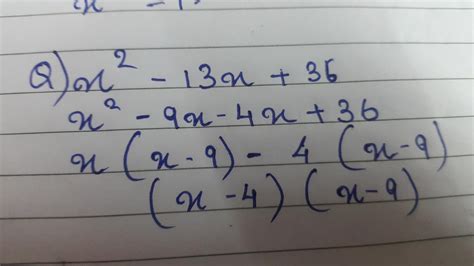 Q) x² - 13x + 36
x² - 9x - 4x + 36
x (x - 9) - 4 (x - 9)
(x - 4) (x - 9)